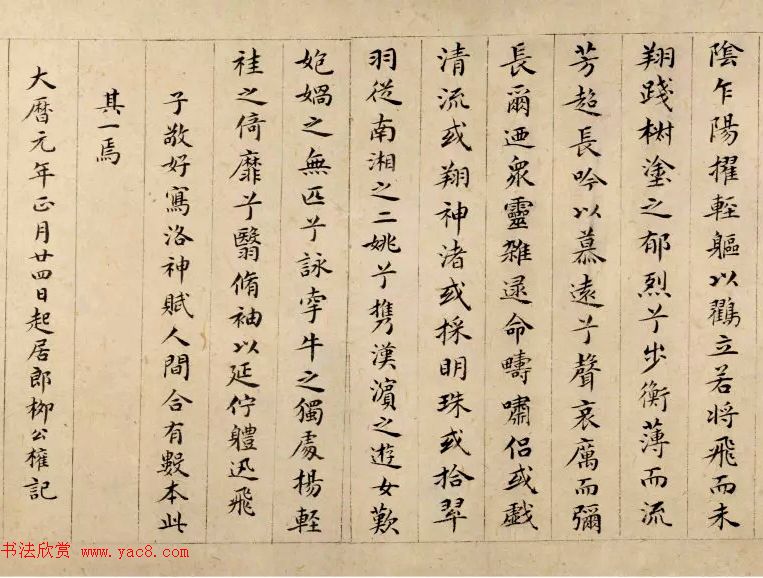 陰乍陽擢輕軀以鸖立若將飛而未
翔踐椒塗之郁烈兮步衡薄而流
芳超長吟以慕遠兮聲哀厲而彌
長爾迺眾靈雜遝命疇嘯侶或戲
清流或翔神渚或採明珠或拾翠
羽從南湘之二姚兮携漢濱之遊女歎
媧之無匹兮詠牽牛之獨處楊輕
袿之倚靡兮翳脩袖以延佇體迅飛
子敬好寫洛神賦人間合有數本此
其一焉
大暦元年正月廿四日起居郎柳公權記
书法欣赏 www.yac8.com